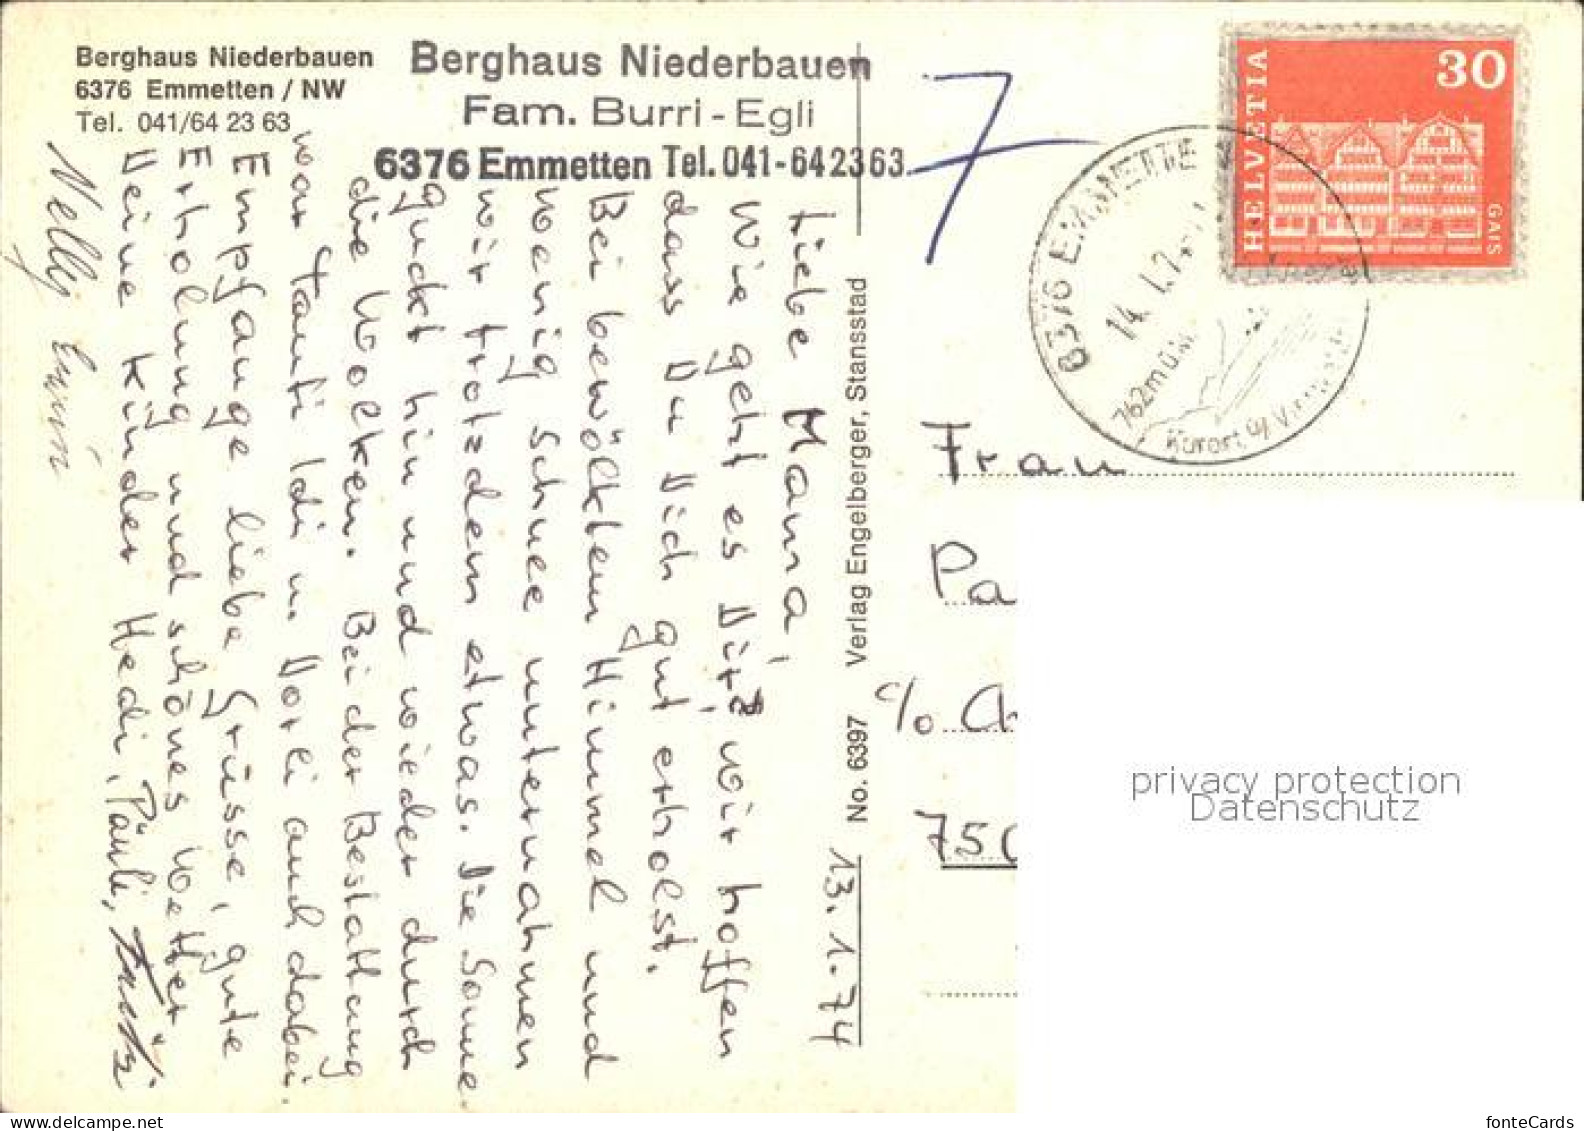 Berghaus Niederbauen
6376 Emmetten / NW
Tel. 041/64 23 63
Berghaus Niederbauen
Fam. Burri - Egli
6376 Emmetten Tel. 041-642363
7
HELVETIA
30
GAIS
6376 EMMETTEN
14. 1. 7
762 m ü.M.
Kurort
13. 1. 74
Liebe Mama,
Wie geht es Dir? wir hoffen
dass Du Dich gut erholst.
Bei bewölktem Himmel und
wenig Schnee unternahmen
wir trotzdem etwas. Die Sonne
guckt hin und wieder durch
die Wolken. Bei der Bestattung
war Tanti Idi u. Dorli auch dabei.
Empfange liebe Grüsse, gute
Erholung und schönes Wetter
Deine Kinder Hedi, Päuli,
Nelly Erwin
No. 6397 Verlag Engelberger, Stansstad
Frau
Pa
c/o
750
privacy protection
Datenschutz
fonteCards